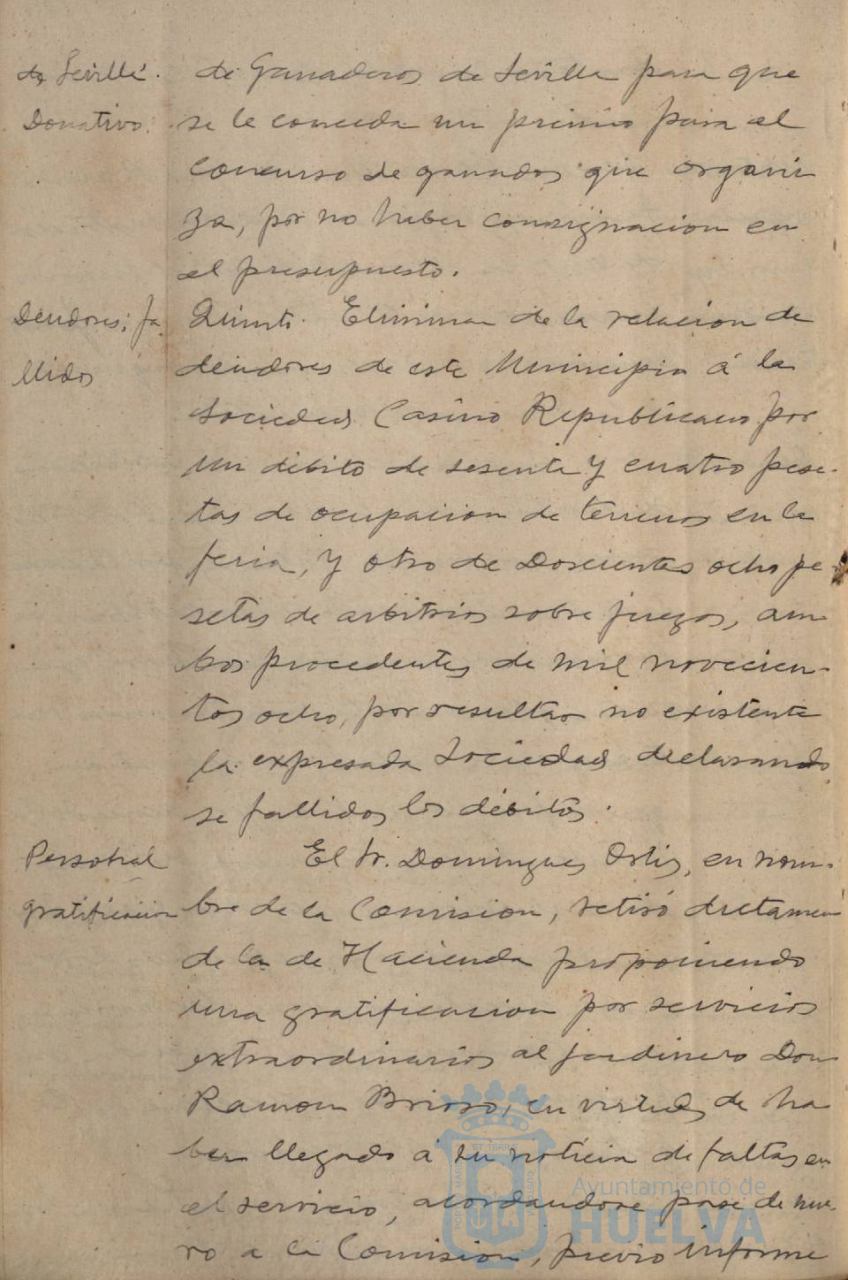 de Sevilla.
Donativo.
de Ganaderos de Sevilla para que
se le conceda un premio para el
concurso de ganados que organi
za, por no haber consignacion en
el presupuesto.
Deudores; fa
llidos
Quinto. Eliminar de la relacion de
deudores de este Municipio á la
Sociedad Casino Republicano por
un débito de sesenta y cuatro pese-
tas de ocupacion de terrenos en la
feria, y otro de Doscientas ocho pe-
setas de arbitrios sobre juegos, am
bos procedentes de mil novecien-
tos ocho, por resultar no existente
la expresada Sociedad declarando
se fallidos los débitos.
Personal
gratificacion
El Sr. Dominguez Ortiz, en nom-
bre de la Comision, retiró dictamen
de la de Hacienda proponiendo
una gratificacion por servicios
extraordinarios al jardinero Don
Ramon Brioso, en virtud de ha
ber llegado á su noticia de faltas en
el servicio, acordandose pase de nue-
vo a la Comision, previo informe
Ayuntamiento de
HUELVA